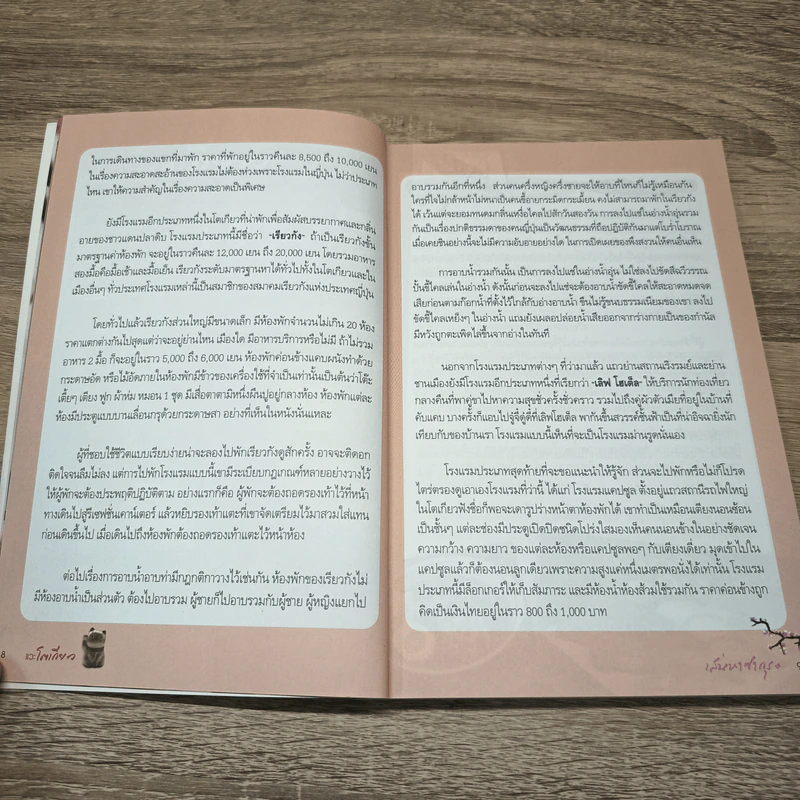 ในการเดินทางของแขกที่มาพัก ราคาที่พักอยู่ในราวคืนละ 8,500 ถึง 10,000 เยน
ในเรื่องความสะอาดสะอ้านของโรงแรมไม่ต้องห่วงเพราะโรงแรมในญี่ปุ่น ไม่ว่าประเภท
ไหน เขาให้ความสำคัญในเรื่องความสะอาดเป็นพิเศษ
ยังมีโรงแรมอีกประเภทหนึ่งในโตเกียวที่น่าพักเพื่อสัมผัสบรรยากาศและกลิ่น
อายของชาวแดนปลาดิบ โรงแรมประเภทนี้มีชื่อว่า "เรียวกัง" ถ้าเป็นเรียวกังชั้น
มาตรฐานค่าห้องพัก จะอยู่ในราวคืนละ 12,000 เยน ถึง 20,000 เยน โดยรวมอาหาร
สองมื้อคือมื้อเช้าและมื้อเย็น เรียวกังระดับมาตรฐานหาได้ทั่วไปทั้งในโตเกียวและใน
เมืองอื่นๆ ทั่วประเทศโรงแรมเหล่านี้เป็นสมาชิกของสมาคมเรียวกังแห่งประเทศญี่ปุ่น
โดยทั่วไปแล้วเรียวกังส่วนใหญ่มีขนาดเล็ก มีห้องพักจำนวนไม่เกิน 20 ห้อง
ราคาแตกต่างกันไปสุดแต่ว่าจะอยู่ย่านไหน เมืองใด มีอาหารบริการหรือไม่มี ถ้าไม่รวม
อาหาร 2 มื้อ ก็จะอยู่ในราว 5,000 ถึง 6,000 เยน ห้องพักค่อนข้างแคบผนังทำด้วย
กระดาษอัด หรือไม้อัดภายในห้องพักมีข้าวของเครื่องใช้ที่จำเป็นเท่านั้นเป็นต้นว่าโต๊ะ
เตี้ยๆ เตียง ฟูก ผ้าห่ม หมอน 1 ชุด มีเสื่อตาตามิหนึ่งผืนปูอยู่กลางห้อง ห้องพักแต่ละ
ห้องมีประตูแบบบานเลื่อนกรุด้วยกระดาษสา อย่างที่เห็นในหนังนั่นแหละ
ผู้ที่ชอบใช้ชีวิตแบบเรียบง่ายน่าจะลองไปพักเรียวกังดูสักครั้ง อาจจะติดอก
ติดใจจนลืมไม่ลง แต่การไปพักโรงแรมแบบนี้เขามีระเบียบกฎเกณฑ์หลายอย่างวางไว้
ให้ผู้พักจะต้องประพฤติปฏิบัติตาม อย่างแรกก็คือ ผู้พักจะต้องถอดรองเท้าไว้ที่หน้า
ทางเดินไปสู่รีเซฟชั่นเคาน์เตอร์ แล้วหยิบรองเท้าแตะที่เขาจัดเตรียมไว้มาสวมใส่แทน
ก่อนเดินขึ้นไป เมื่อเดินไปถึงห้องพักต้องถอดรองเท้าแตะไว้หน้าห้อง
ต่อไปเรื่องการอาบน้ำอาบท่ามีกฎกติกาวางไว้เช่นกัน ห้องพักของเรียวกังไม่
มีห้องอาบน้ำเป็นส่วนตัว ต้องไปอาบรวม ผู้ชายก็ไปอาบรวมกับผู้ชาย ผู้หญิงแยกไป
8
แวะโตเกียว
อาบรวมกันอีกที่หนึ่ง ส่วนคนครึ่งหญิงครึ่งชายจะให้อาบที่ไหนก็ไม่รู้เหมือนกัน
ใครที่ใจไม่กล้าหน้าไม่ทนเป็นคนขี้อายกระมิดกระเมี้ยน คงไม่สามารถมาพักในเรียวกัง
ได้ เว้นแต่จะยอมทนดมกลิ่นเหงื่อไคลไปสักวันสองวัน การลงไปแช่ในอ่างน้ำอุ่นรวม
กันเป็นเรื่องปกติธรรมดาของคนญี่ปุ่นเป็นวัฒนธรรมที่ถือปฏิบัติกันมาแต่โบร่ำโบราณ
เมื่อเคยชินอย่างนี้จะไม่มีความอับอายอย่างใด ในการเปิดเผยของพึงสงวนให้คนอื่นเห็น
การอาบน้ำรวมกันนั้น เป็นการลงไปแช่ในอ่างน้ำอุ่น ไม่ใช่ลงไปขัดสีฉวีวรรณ
ปั้นขี้ไคลเล่นในอ่างน้ำ ดังนั้นก่อนจะลงไปแช่จะต้องอาบน้ำขัดขี้ไคลให้สะอาดหมดจด
เสียก่อนตามก๊อกน้ำที่ตั้งไว้ใกล้กับอ่างอาบน้ำ ขืนไม่รู้ขนบธรรมเนียมของเขา ลงไป
ขัดขี้ไคลเหยิงๆ ในอ่างน้ำ แถมยังเผลอปล่อยน้ำเสียออกจากร่างกายเป็นของกำนัล
มีหวังถูกตะเพิดไล่ขึ้นจากอ่างในทันที
นอกจากโรงแรมประเภทต่างๆ ที่ว่ามาแล้ว แถวย่านสถานเริงรมย์และย่าน
ชานเมืองยังมีโรงแรมอีกประเภทหนึ่งที่เรียกว่า "เลิฟ โฮเต็ล" ให้บริการนักท่องเที่ยว
กลางคืนที่พาคู่ขาไปหาความสุขชั่วครั้งชั่วคราว รวมไปถึงคู่ผัวตัวเมียที่อยู่ในบ้านที่
คับแคบ บางครั้งก็แอบไปจู๋จี๋ดู๋ดี๋ที่เลิฟโฮเต็ล พากันขึ้นสวรรค์ชั้นฟ้าเป็นที่น่าอิจฉายิ่งนัก
เทียบกับของบ้านเรา โรงแรมแบบนี้เห็นที่จะเป็นโรงแรมม่านรูดนั่นเอง
โรงแรมประเภทสุดท้ายที่จะขอแนะนำให้รู้จัก ส่วนจะไปพักหรือไม่ก็โปรด
ไตร่ตรองดูเอาเองโรงแรมที่ว่านี้ ได้แก่ โรงแรมแคปซูล ตั้งอยู่แถวสถานีรถไฟใหญ่
ในโตเกียวฟังชื่อก็พอจะเดารูปร่างหน้าตาห้องพักได้ เขาทำเป็นเหมือนเตียงนอนซ้อน
เป็นชั้นๆ แต่ละช่องมีประตูเปิดปิดชนิดโปร่งใสมองเห็นคนนอนข้างในอย่างชัดเจน
ความกว้าง ความยาว ของแต่ละห้องหรือแคปซูลพอๆ กับเตียงเดี่ยว มุดเข้าไปใน
แคปซูลแล้วก็ต้องนอนลูกเดียวเพราะความสูงแค่หนึ่งเมตรพอนั่งได้เท่านั้น โรงแรม
ประเภทนี้มีล็อกเกอร์ให้เก็บสัมภาระ และมีห้องน้ำห้องส้วมใช้รวมกัน ราคาค่อนข้างถูก
คิดเป็นเงินไทยอยู่ในราว 800 ถึง 1,000 บาท
เสน่หาซากุระ